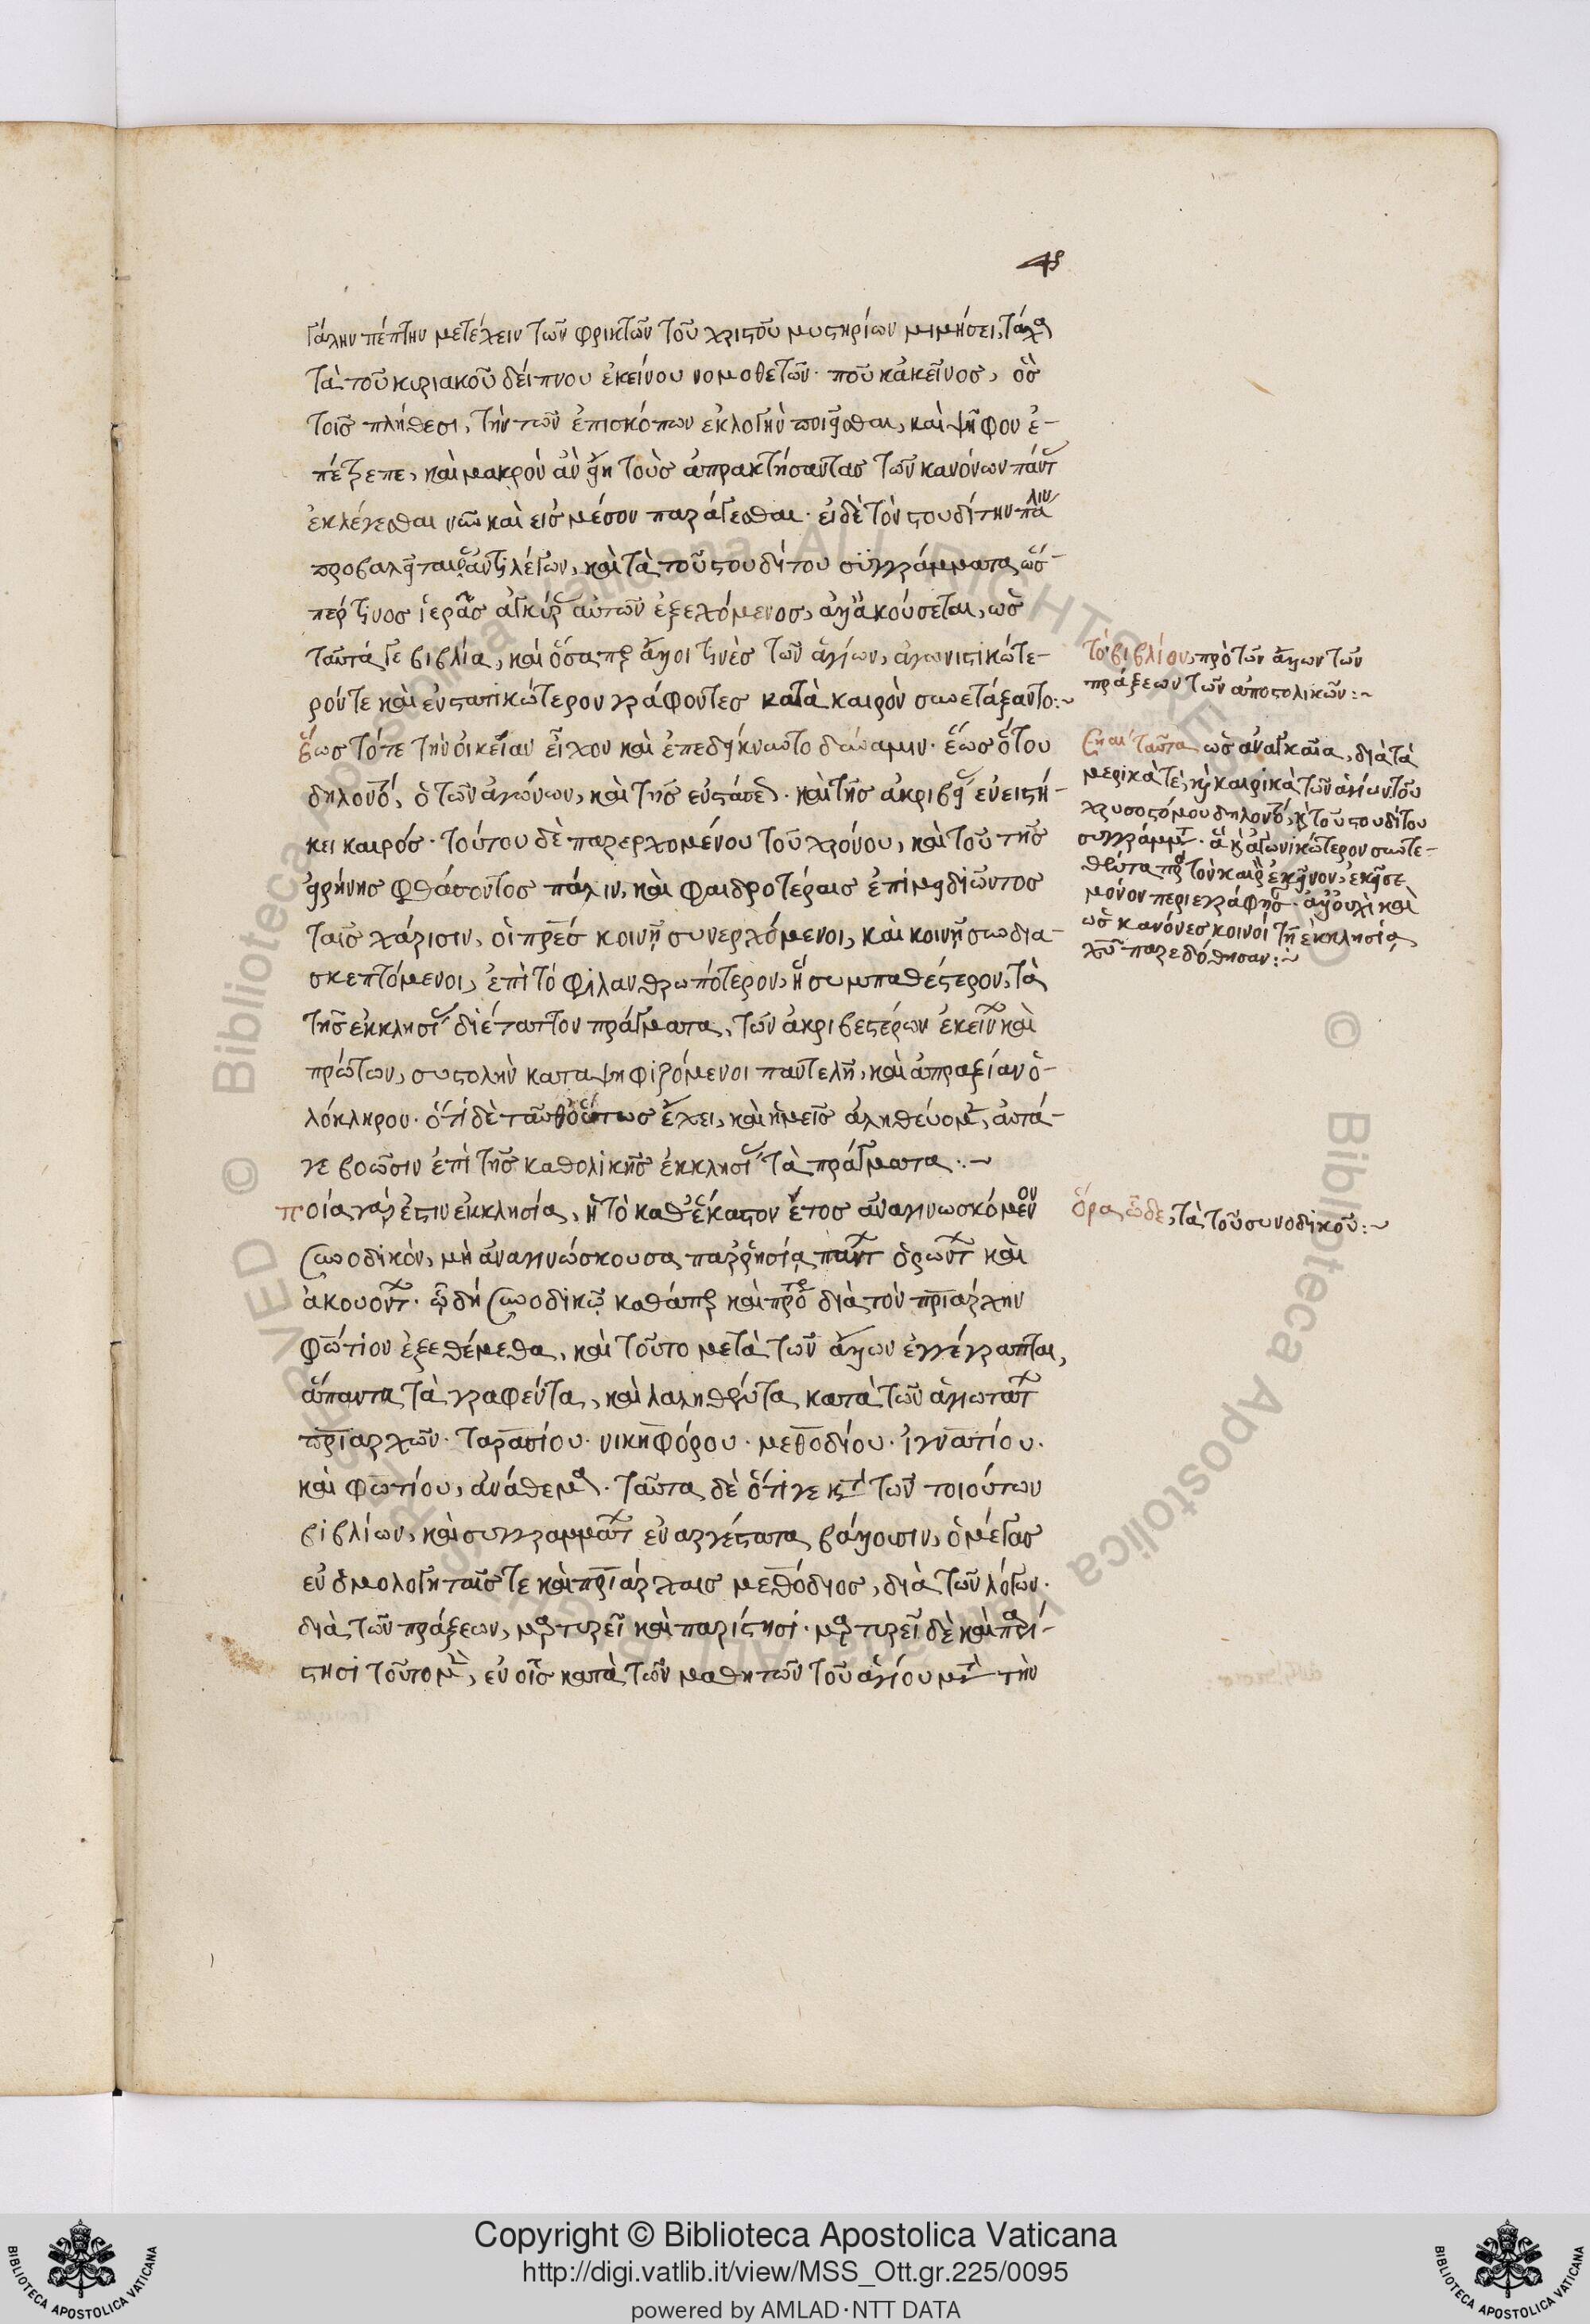 γάλην πέπτην μετέχειν τῶν φρικτῶν τοῦ χριστοῦ μυστηρίων μιμήσει, τάχα
τὰ τοῦ κυριακοῦ δείπνου ἐκείνου νομοθετῶν· ποῦ κἀκεῖνος, ὃς
τοῖς πλήθεσι, τὴν τῶν ἐπισκόπων ἐκλογὴν ποιεῖσθαι, καὶ ψῆφον ἐ-
πέτρεπε, καὶ μακρὸν ἂν εἴη τοὺς ἀπρακτήσαντας τῶν κανόνων πάντας
ἐκλέγεσθαι νῦν καὶ εἰς μέσον παράγεσθαι· εἰ δὲ τὸν στουδίτην πάλιν
προβαλεῖται ὁ ἀντιλέγων, καὶ τὰ τοῦ στουδίτου συγγράμματα, ὥσ-
περ τινος ἱερᾶς ἀγκύρας αὐτῶν ἐξεχόμενος, ἀλλ' ἀκούσεται, ὡς
ταῦτά γε βιβλία, καὶ ὅσαπερ ἄλλοι τινὲς τῶν ἁγίων, ἀγωνιστικώτε-
ρόν τε καὶ ἐνστατικώτερον γράφοντες κατὰ καιρὸν συνετάξαντο:~
ἕως τότε τὴν οἰκείαν εἶχον καὶ ἐπεδείκνυντο δύναμιν· ἕως ὅτου
δηλονότι, ὁ τῶν ἀγώνων, καὶ τῆς ἐνστάσεως· καὶ τῆς ἀκριβείας ἐνειστή-
κει καιρός· τούτου δὲ παρερχομένου τοῦ χρόνου, καὶ τοῦ τῆς
εἰρήνης φθάσοντος πάλιν, καὶ φαιδροτέραις ἐπιμειδιῶντος
ταῖς χάρισιν, οἱ πρες κοινῇ συνερχόμενοι, καὶ κοινῇ συνδια-
σκεπτόμενοι, ἐπὶ τὸ φιλανθρωπότερον, ἢ συμπαθέστερον, τὰ
τῆς ἐκκλησίας διέταττον πράγματα, τῶν ἀκριβεστέρων ἐκείνων καὶ
πρώτων, συστολὴν καταψηφιζόμενοι παντελῆ, καὶ ἀπραξίαν ὁ-
λόκληρον· ὅτι δὲ ταῦθ' οὕτως ἔχει, καὶ ἡμεῖς ἀληθεύομεν, αὐτά-
γε βοῶσιν ἐπὶ τῆς καθολικῆς ἐκκλησίας τὰ πράγματα:~
ποία γάρ ἐστιν ἐκκλησία, ἡ τὸ καθ' ἕκαστον ἔτος ἀναγινωσκόμενον
συνοδικὸν, μὴ ἀναγινώσκουσα παρρησίᾳ πάντων ὁρώντων καὶ
ἀκουόντων· ᾧ δὴ συνοδικῷ καθάπερ καὶ πρότερον διὰ τὸν πριάρχην
φώτιον ἐξεθέμεθα, καὶ τοῦτο μετὰ τῶν ἄλλων ἐγγέγραπται,
ἅπαντα τὰ γραφέντα, καὶ λαληθέντα, κατὰ τῶν ἁγιωτάτων
πριαρχῶν· ταρασίου· νικηφόρου· μεθοδίου· ἰγνατίου·
καὶ φωτίου, ἀνάθεμα· ταῦτα δὲ ὅτι γε κατὰ τῶν τοιούτων
βιβλίων, καὶ συγγραμμάτων ἐναργέστατα βάλλουσιν, ὁ μέγας
ἐν ὁμολογηταῖς τε καὶ πριάρχαις μεθόδιος, διὰ τῶν λόγων·
διὰ τῶν πράξεων, μαρτυρεῖ καὶ παρίστησι· μαρτυρεῖ δὲ καὶ παρί-
στησι τοῦτο μὲν, ἐν οἷς κατὰ τῶν μαθητῶν τοῦ ἁγίου μετὰ τὴν
τὸ βιβλίον, πρὸ τῶν ἄλλων τῶν
πράξεων τῶν ἀποστολικῶν:~
σημείωσαι ταῦτα ὡς ἀναγκαῖα, διὰ τὰ
μερικά τε, καὶ καιρικὰ τῶν ἁγίων τοῦ
χρυσοστόμου δηλονότι, καὶ τοῦ στουδίτου
συγγράμματα· ἃ καὶ ἀγωνικώτερον συντε-
θέντα πρὸς τὸν καιρὸν ἐκεῖνον, ἐκεῖσε
μόνον περιεγράφησαν· ἀλλ' οὐχὶ καὶ
ὡς κανόνες κοινοί τῇ ἐκκλησίᾳ
χυ παρεδόθησαν:~
ὅρα ὧδε, τὰ τοῦ συνοδικοῦ:~
Copyright © Biblioteca Apostolica Vaticana
http://digi.vatlib.it/view/MSS_Ott.gr.225/0095
powered by AMLAD·NTT DATA